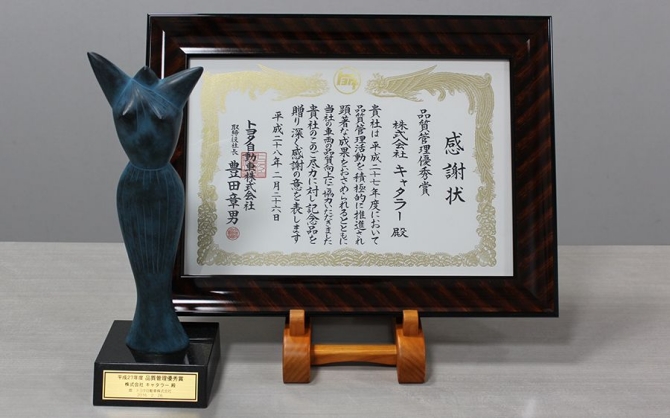 感謝状
品質管理優秀賞
株式会社 キャタラー 殿
貴社は平成二十七年度において
品質管理活動を積極的に推進され
顕著な成果をおさめられるとともに
当社の車両の品質向上に協力いただきました
貴社のこのご尽力に対し記念品を
贈り深く感謝の意を表します
平成二十八年 二月二十六日
トヨタ自動車株式会社
取締役社長 豊田章男
平成27年度 品質管理優秀賞
株式会社 キャタラー 殿